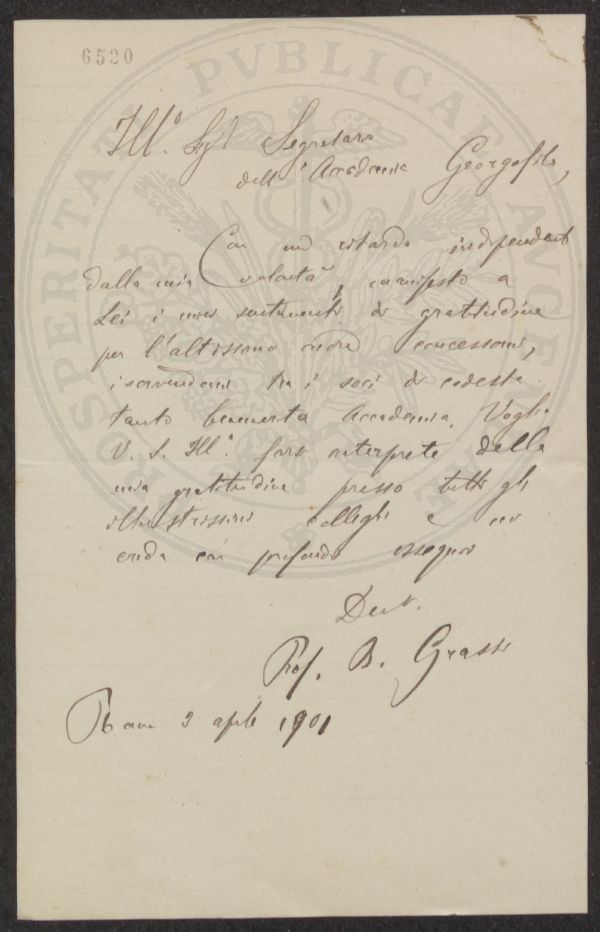 6520
Ill.o Sig.r Segretario
dell'Accademia Georgofili,
Con un ritardo indipendente
dalla mia volontà, manifesto a
Lei i miei sentimenti di gratitudine
per l'altissimo onore concessomi,
iscrivendomi tra i soci di codesta
tanto benemerita Accademia. Voglia
V. S. Ill.a farsi interprete della
mia gratitudine presso tutti gli
illustrissimi colleghi e mi
creda con profondo ossequio
Dev.
Prof. B. Grassi
Roma 3 aprile 1901
PROSPERITATI PVBLICAE AVGENDAE